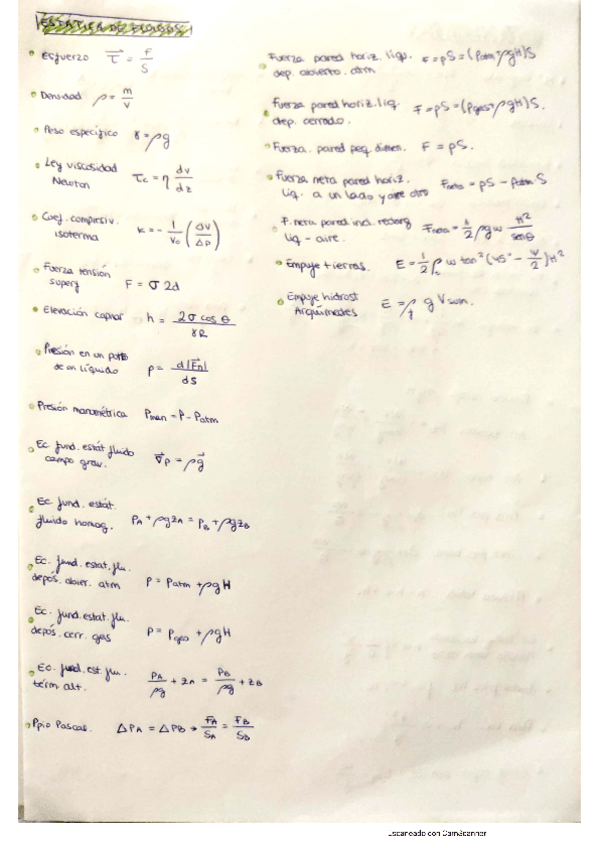 ESTÁTICA DE FLUIDOS
Esfuerzo τ⃗ = F/S
Densidad ρ = m/V
Peso específico γ = ρg
Ley viscosidad
Newton τc = η dv/dz
Coef. compresiv.
isoterma K = - 1/V₀ (ΔV/ΔP)
Fuerza tensión
superf F = σ 2d
Elevación capilar h = 2σ cos θ / γR
Presión en un pto
de un líquido p = d|F⃗n| / dS
Presión manométrica Pman = P - Patm
Ec. fund. estát fluido
campo grav. ∇⃗p = ρg⃗
Ec. fund. estát.
fluido homog. PA + ρgzA = PB + ρgzB
Ec. fund. estat. flu.
depós. abier. atm P = Patm + ρgH
Ec. fund. estat. flu.
depós. cerr. gas P = Pgas + ρgH
Ec. fund. est. flu.
térm alt. PA/ρg + zA = PB/ρg + zB
Ppio Pascal. ΔPA = ΔPB → FA/SA = FB/SB
Fuerza pared horiz. liqu. F = pS = (Patm + ρgH)S
dep. abierto. atm
Fuerza pared horiz. liq. F = pS = (Pgas + ρgH)S.
dep. cerrado.
Fuerza. pared peq. dimen. F = pS.
Fuerza neta pared horiz.
liq. a un lado y aire otro Fneta = pS - Patm S
F. neta pared incl. rectang
liq - aire. Fneta = 1/2 ρgw H²/senθ
Empuje tierras. E = 1/2 ρ w tan²(45° - Ψ/2) H²
Empuje hidrost
Arquímedes E = ρf g Vsum.
Escaneado con CamScanner